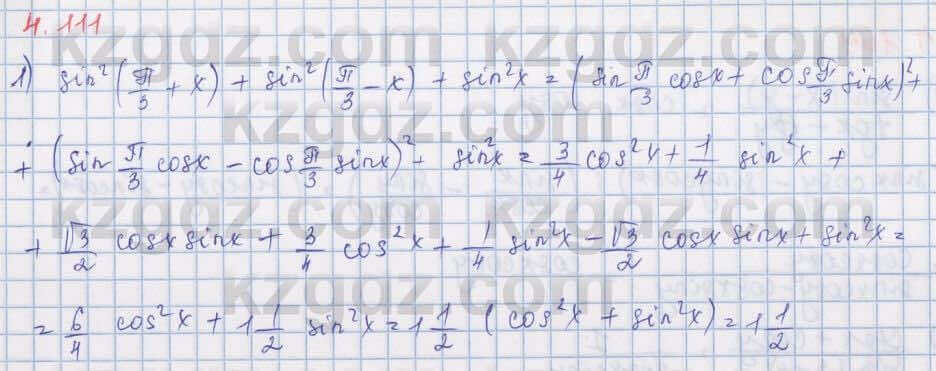 4.111
1) sin²(π/3 + x) + sin²(π/3 − x) + sin²x = (sin π/3 cosx + cos π/3 sinx)² +
+ (sin π/3 cosx − cos π/3 sinx)² + sin²x = 3/4 cos²x + 1/4 sin²x +
+ √3/2 cosx sinx + 3/4 cos²x + 1/4 sin²x − √3/2 cosx sinx + sin²x =
= 6/4 cos²x + 1 1/2 sin²x = 1 1/2 (cos²x + sin²x) = 1 1/2
kzgdz.com kzgdz.com
kzgdz.com
kzgdz.com kzgdz.com
kzgdz.com